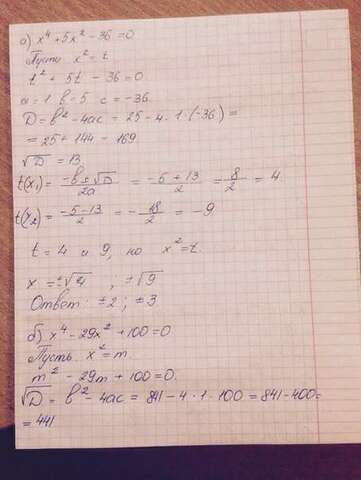 а) x⁴ + 5x² - 36 = 0
Пусть x² = t.
t² + 5t - 36 = 0
a = 1 b = 5 c = -36.
D = b² - 4ac = 25 - 4 · 1 · (-36) =
= 25 + 144 - 169.
√D = 13.
t(x₁) = (-b ± √D)/2a = (-5 + 13)/2 = 8/2 = 4.
t(x₂) = (-5 - 13)/2 = -18/2 = -9
t = 4 и 9, но x² = t.
x = ±√4 ; ±√9
Ответ: ±2 ; ±3
б) x⁴ - 29x² + 100 = 0
Пусть x² = m.
m² - 29m + 100 = 0.
√D = b² - 4ac = 841 - 4 · 1 · 100 = 841 - 400 =
= 441